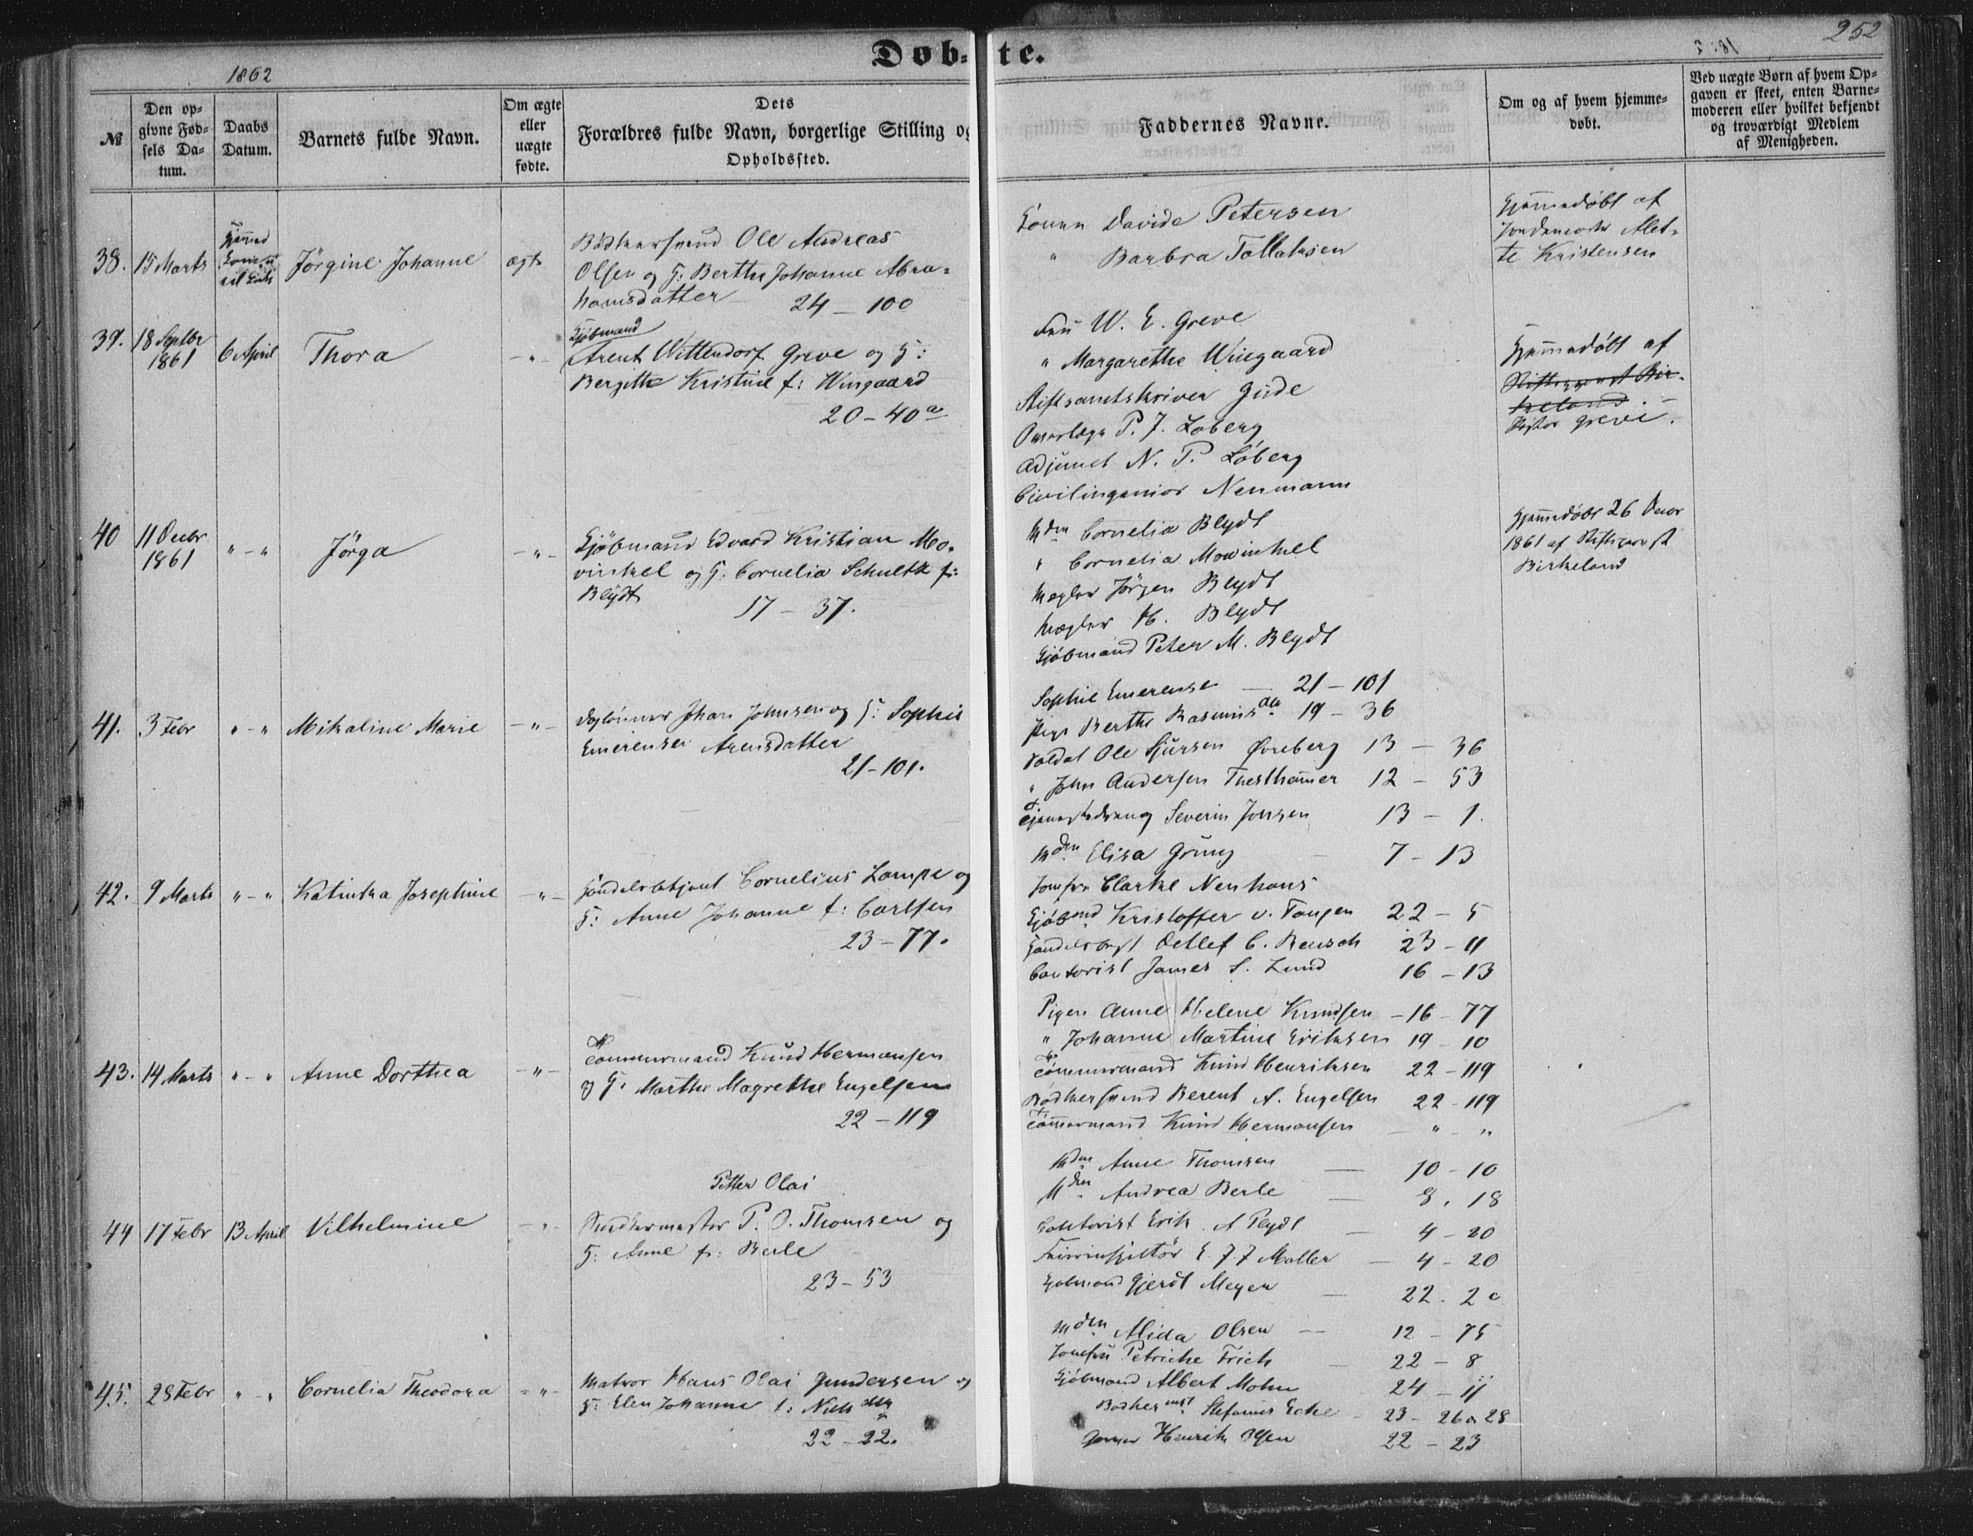 252
1862
Døb-te.
№
Den op-
givne Fød-
sels Da-
tum.
Daabs
Datum.
Barnets fulde Navn.
Om ægte
eller
uægte
fødte.
Dets
Forældres fulde Navn, borgerlige Stilling og
Opholdssted.
Faddernes Navne.
Om og af hvem hjemme-
døbt.
Ved uægte Børn af hvem Op-
gaven er skeet, enten Barne-
moderen eller hvilket bekjendt
og troværdigt Medlem
af Menigheden.
38. 15 Marts Jørgine Johanne ægte
Bødkersvend Ole Andreas
Olsen og H. Berthe Johanne Abra-
hamsdatter 24 - 100
Konen Davida Petersen
" Barbra Tollaksen
Hjemmedøbt af
Jordemoder Alet-
te Kristensen
39. 18 Septbr
1861 6 April Thora - " -
Kjøbmand
Arent Wittendorf Greve og H:
Bergitte Kristine f: Wiisgaard
20 - 40 a
Fru W. E. Greve
" Margarethe Wiisgaard
Stiftsamtskriver Gude
Overlæge P. J. Løberg
Adjunct N. P. Løberg
Civilingeniør Neumann
Hjemmedøbt af
Stiftsprovst Bir-
keland
Pastor Greve.
40 11 Decbr
1861 " - " Jørga - " -
Kjøbmand Edvard Kristian Mo-
vinkel og H. Cornelia Schultz f:
Blydt 17 - 37.
Mden Cornelia Blydt
" Cornelia Mowinkel
Mægler Jørgen Blydt
Mægler H. Blydt
Kjøbmand Peter M. Blydt
Hjemmedøbt 26 Decbr
1861 af Stiftsprovst
Birkeland
41. 3 Febr " - " Mikaline Marie - " -
Daglønner Johan Johnsen og H: Sophie
Emerense Arensdatter
21 - 101.
Sophie Emerense - 21 - 101
Pige Berthe Rasmusdtr 19 - 36
Soldat Ole Sjursen Øvreberg 13 - 36
" John Andersen Thesthammer 12 - 53
Tjenestedreng Severin Jonsen 13 - 1.
42. 9 Marts " - " Katinka Josephine - " -
Handelsbetjent Cornelius Lampe og
H: Anne Johanne f: Carlsen
23 - 77.
Mden Elisa Grung - 7 - 13
Jomfru Clarke Neuhaus
Kjøbmd Kristoffer v. Tangen 22 - 5
Handelsbegt Detlef C. Reusch 23 - 11
Contorist James S. Lund 16 - 13
43. 14 Marts " - " Anne Dorthea - " -
Tømmermand Knud Hermansen
og H. Marthe Magrethe Engelsen
22 - 119
Pigen Anne Helene Knudsen - 16 - 77
" Johanne Martine Eriksen 19 - 10
Tømmermand Knud Henriksen 22 - 119
Bødkersvend Berent A. Engelsen 22 - 119
Tømmermand Knud Hermansen " - "
44 17 Febr 13 April Vilhelmine - " -
Petter Olai
Snedkermester P. O. Thomsen og
H: Anne f: Berle
23 - 53
Mden Anne Thomsen - 10 - 10
Mden Andrea Berle - 8. 18
Contorist Erik A Blydt - 4 - 20
E. J. J Møller - 4 - 20
Kjøbmand Gjerdt Meyer - 22. 2 c
45. 28 Febr " - " Cornelia Theodora - " -
Matros Hans Olai Gundersen og
H: Elen Johanne f: Nielsdtr
22 - 22.
Mden Alida Olsen - 12 - 75
Jomfru Petricke Frich - 22 - 8
Kjøbmand Albert Mohn 24 - 11
Bødkermst Stefanus Ecke - 23 - 26 a 28
Henrik Olsen 22 - 23